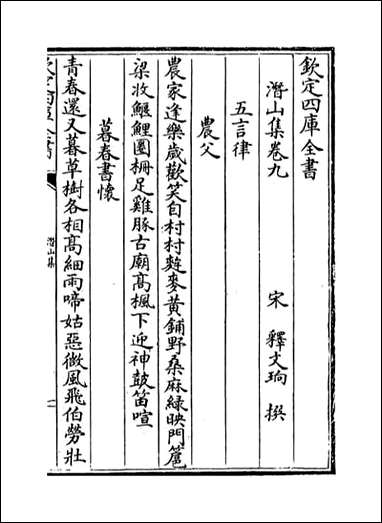 欽定四庫全書
潛山集卷九
宋　釋文珦　撰
五言律
農父
農家逢樂歲歡笑自村村麰麥黄鋪野桑麻緑映門扈
梁收鰋鯉圈柵足雞豚古廟髙楓下迎神鼓笛喧
暮春書懷
青春還又暮草樹各相髙細雨啼姑惡微風飛伯勞壯
潛山集
一